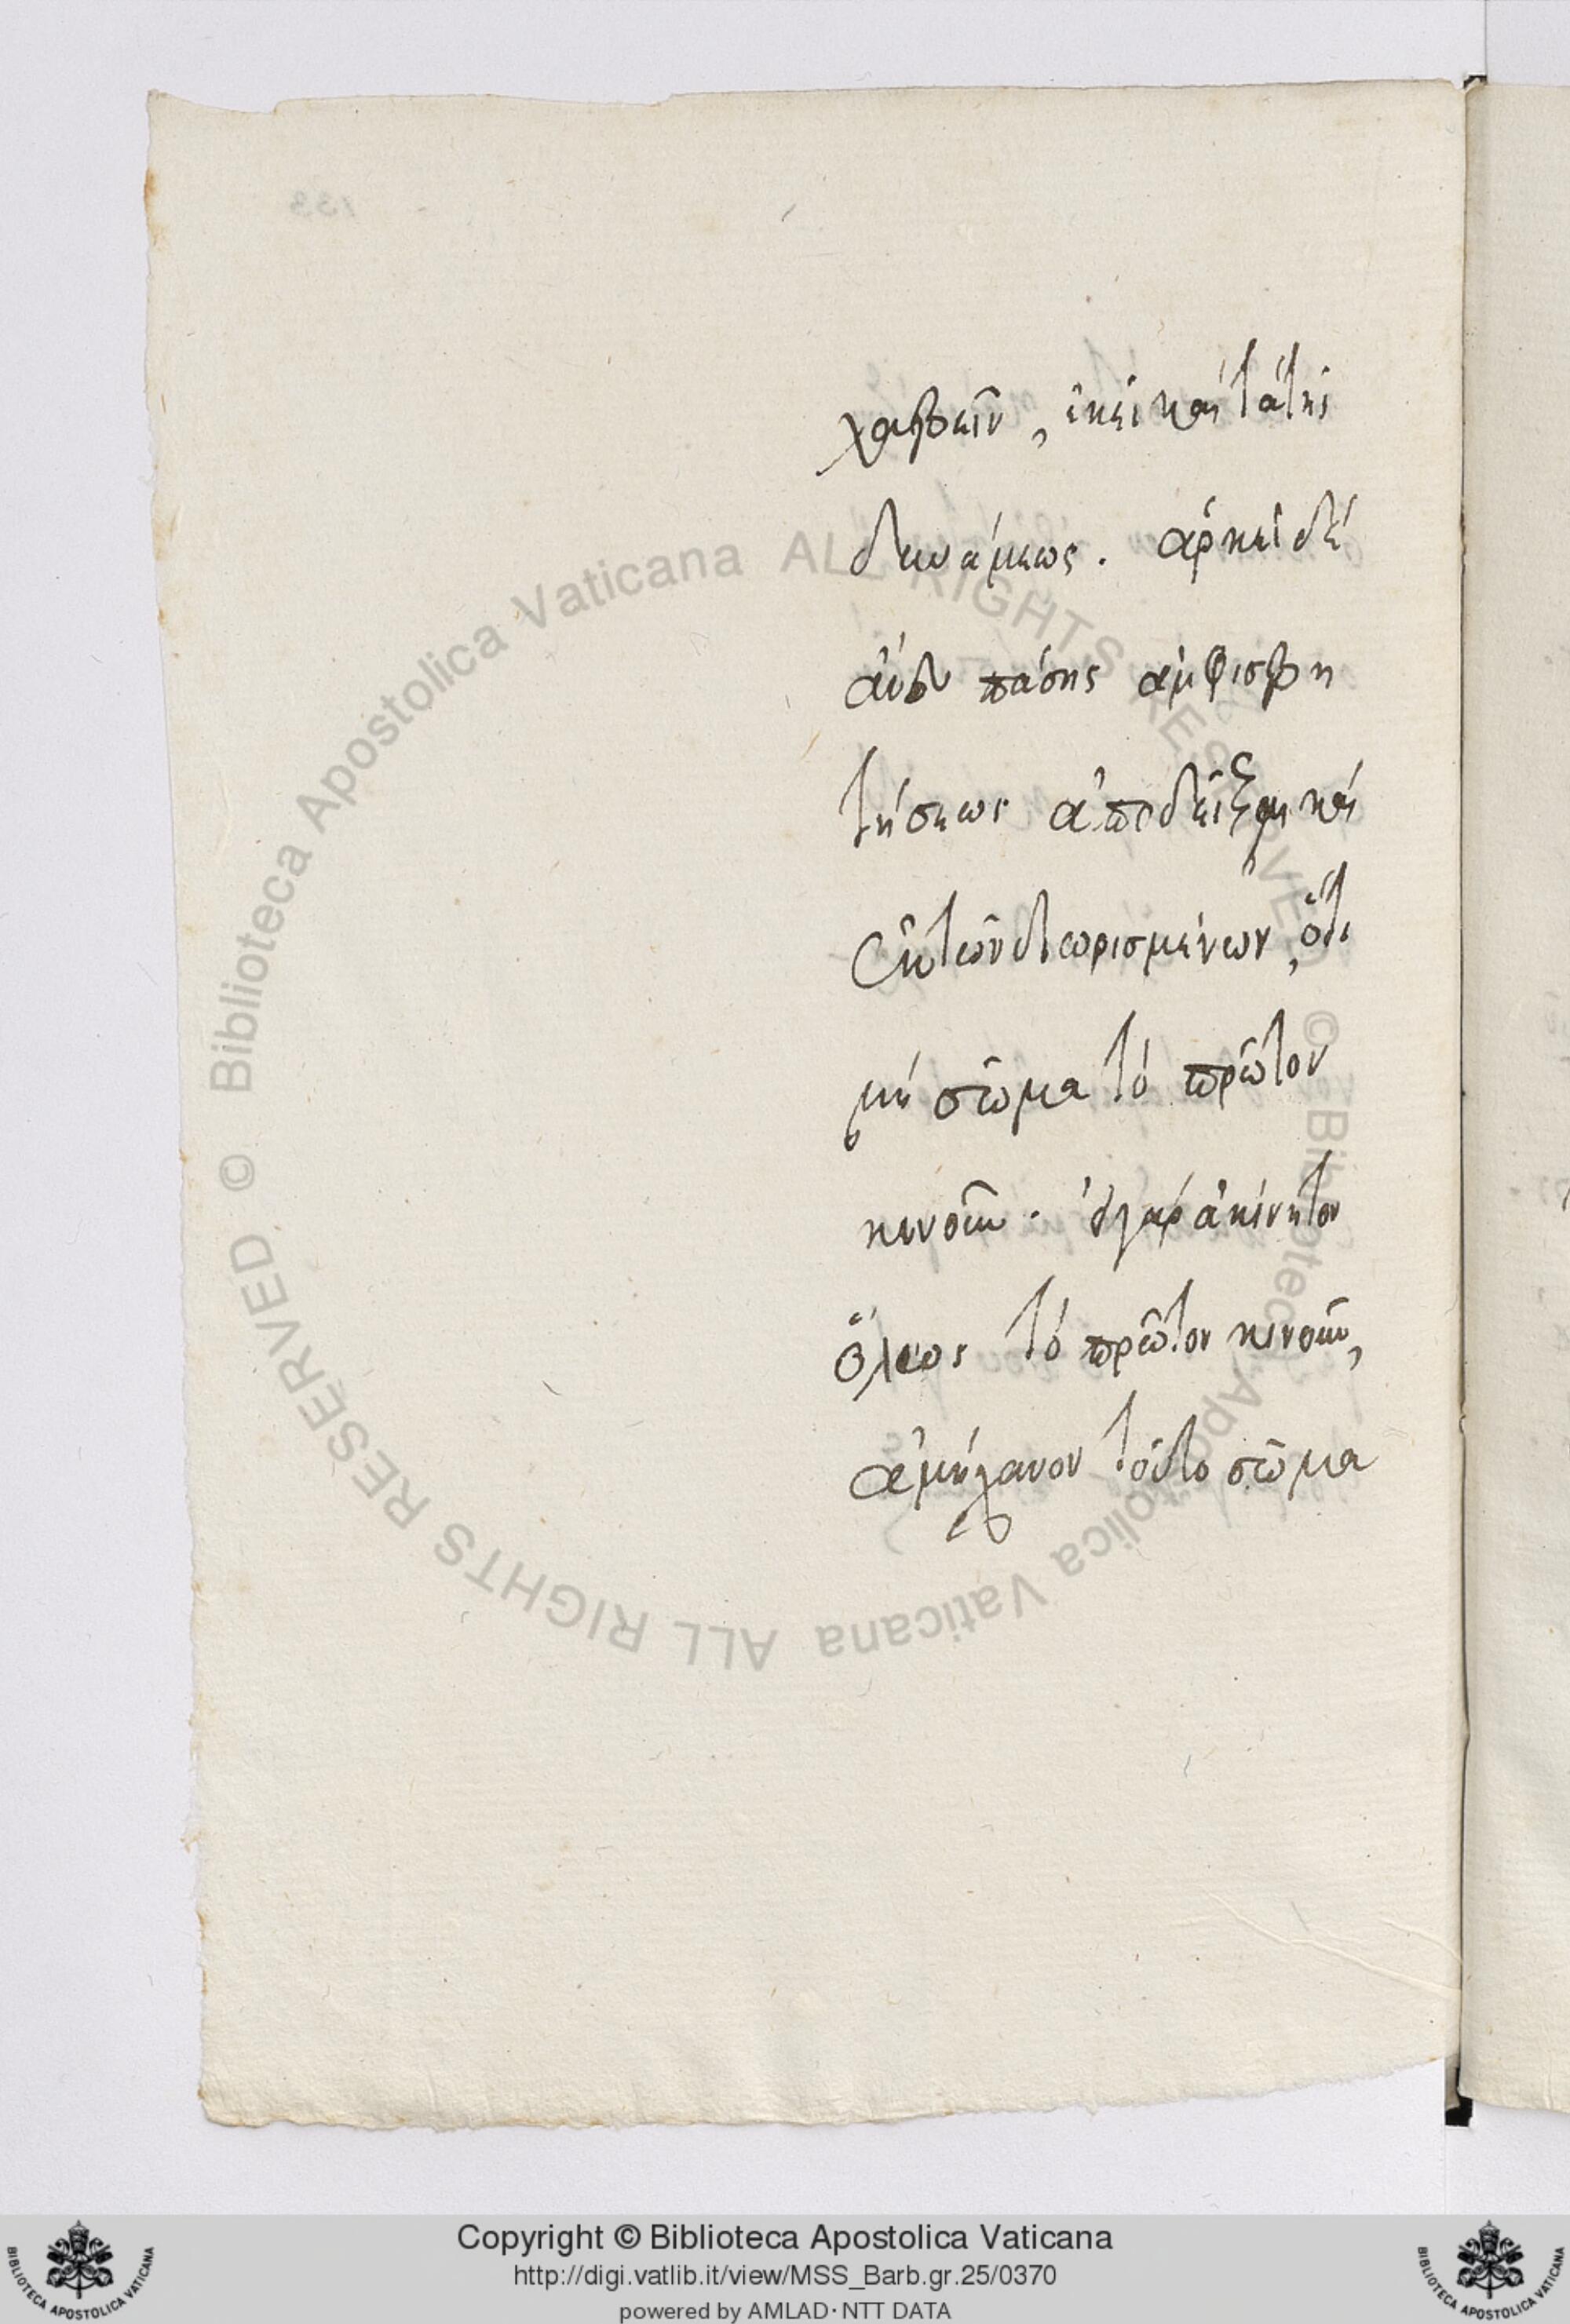 χαβεῖν, ἐκεῖ καὶ τὰ τῆς
δυνάμεως. ἀρκεῖ δὲ
ἄνευ πάσης ἀμφισβη
τήσεως ἀποδεῖξαι καὶ
ἐκ τῶν διωρισμένων, ὅτι
μὴ σῶμα τὸ πρῶτον
κινοῦν. εἰ γὰρ ἀκίνητον
ὅλως τὸ πρῶτον κινοῦν,
ἀμήχανον τοῦτο σῶμα
133
© Biblioteca Apostolica Vaticana ALL RIGHTS RESERVED
© Biblioteca Apostolica Vaticana ALL RIGHTS RESERVED
Copyright © Biblioteca Apostolica Vaticana
http://digi.vatlib.it/view/MSS_Barb.gr.25/0370
powered by AMLAD·NTT DATA
BIBLIOTECA APOSTOLICA VATICANA
BIBLIOTECA APOSTOLICA VATICANA